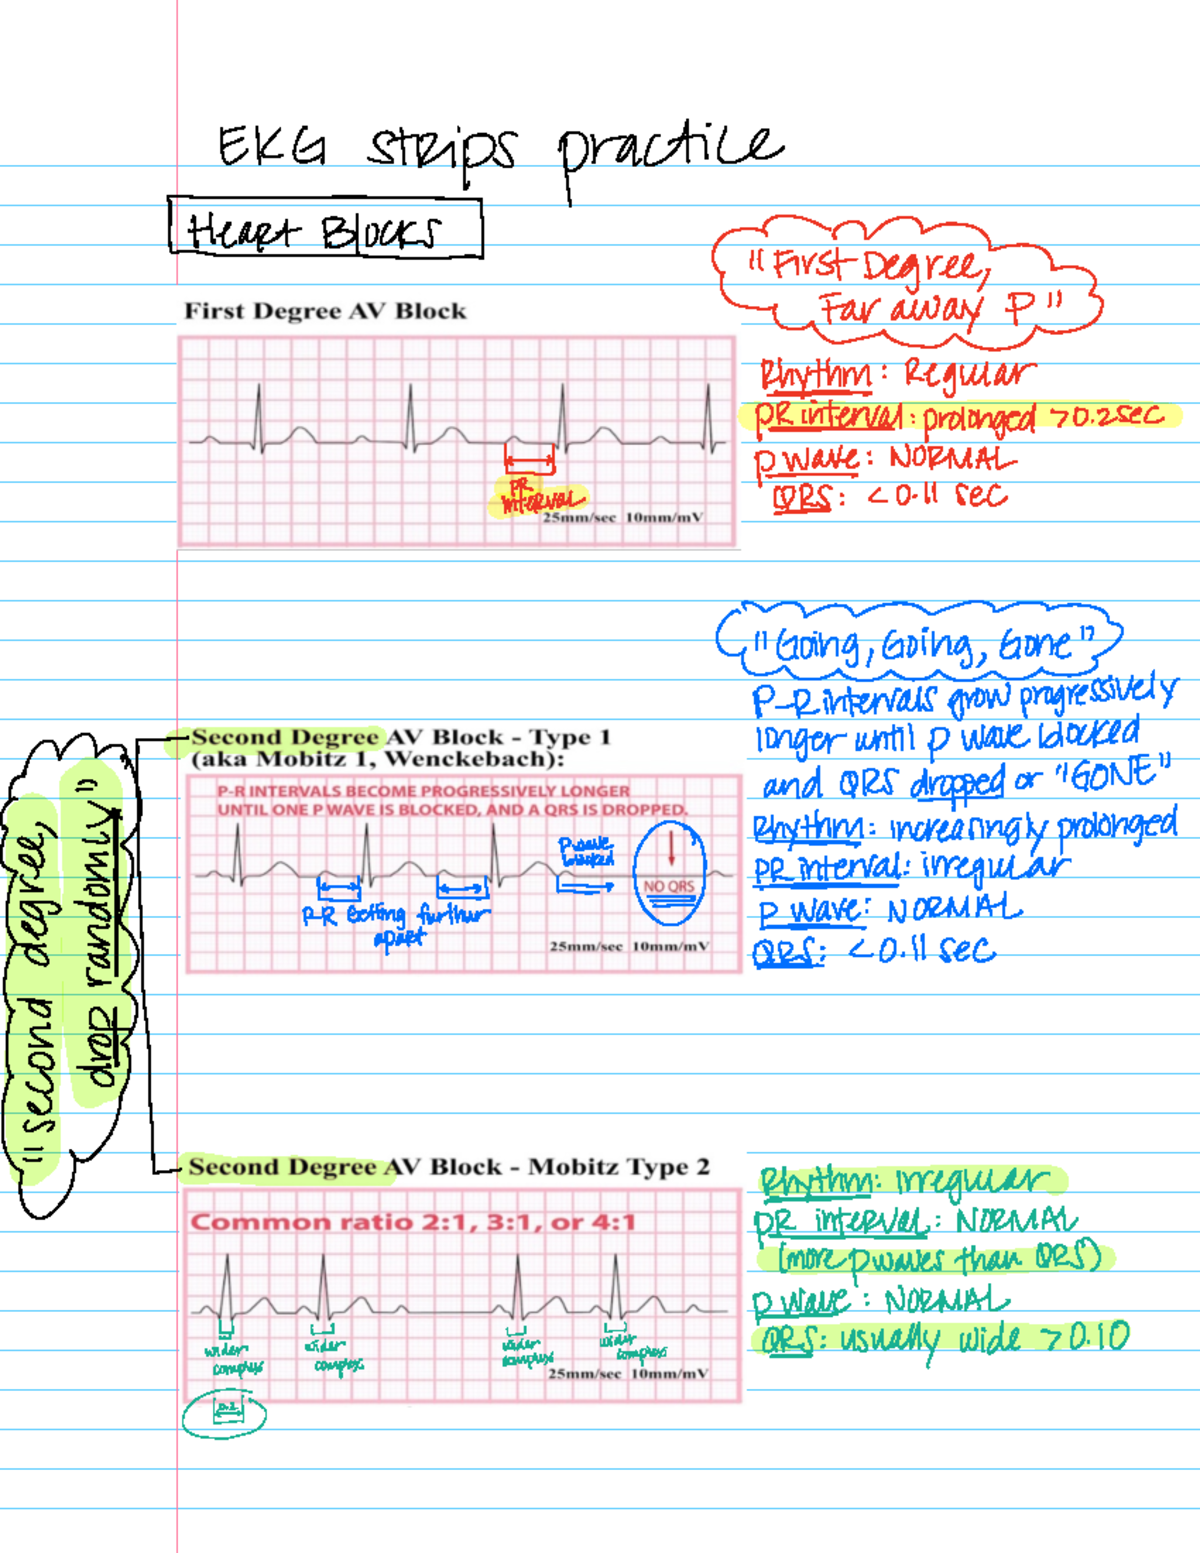 EKG strips practice
Heart Blocks
First Degree AV Block
"First Degree,
Far away P"
Rhythm: Regular
PR interval: prolonged >0.2sec
P wave: NORMAL
QRS: <0.11 sec
PR
interval
25mm/sec 10mm/mV
"Going, Going, Gone"
P-R intervals grow progressively
longer until p wave blocked
and QRS dropped or "GONE"
Rhythm: increasingly prolonged
PR interval: irregular
P wave: NORMAL
QRS: <0.11 sec
Second Degree AV Block - Type 1
(aka Mobitz 1, Wenckebach):
P-R INTERVALS BECOME PROGRESSIVELY LONGER
UNTIL ONE P WAVE IS BLOCKED, AND A QRS IS DROPPED.
P wave
blocked
NO QRS
P-R getting further
apart
25mm/sec 10mm/mV
"second degree,
drop randomly"
Second Degree AV Block - Mobitz Type 2
Common ratio 2:1, 3:1, or 4:1
wider
complexs
wider
complexs
wider
complexs
wider
complexs
25mm/sec 10mm/mV
0.2
Rhythm: irregular
PR interval: NORMAL
(more p waves than QRS)
P wave: NORMAL
QRS: usually wide >0.10